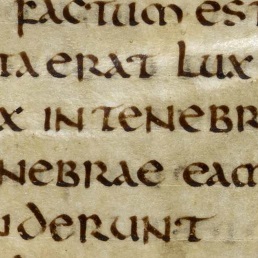 factum est
ta erat lux
x in tenebr
nebrae eam
nderunt